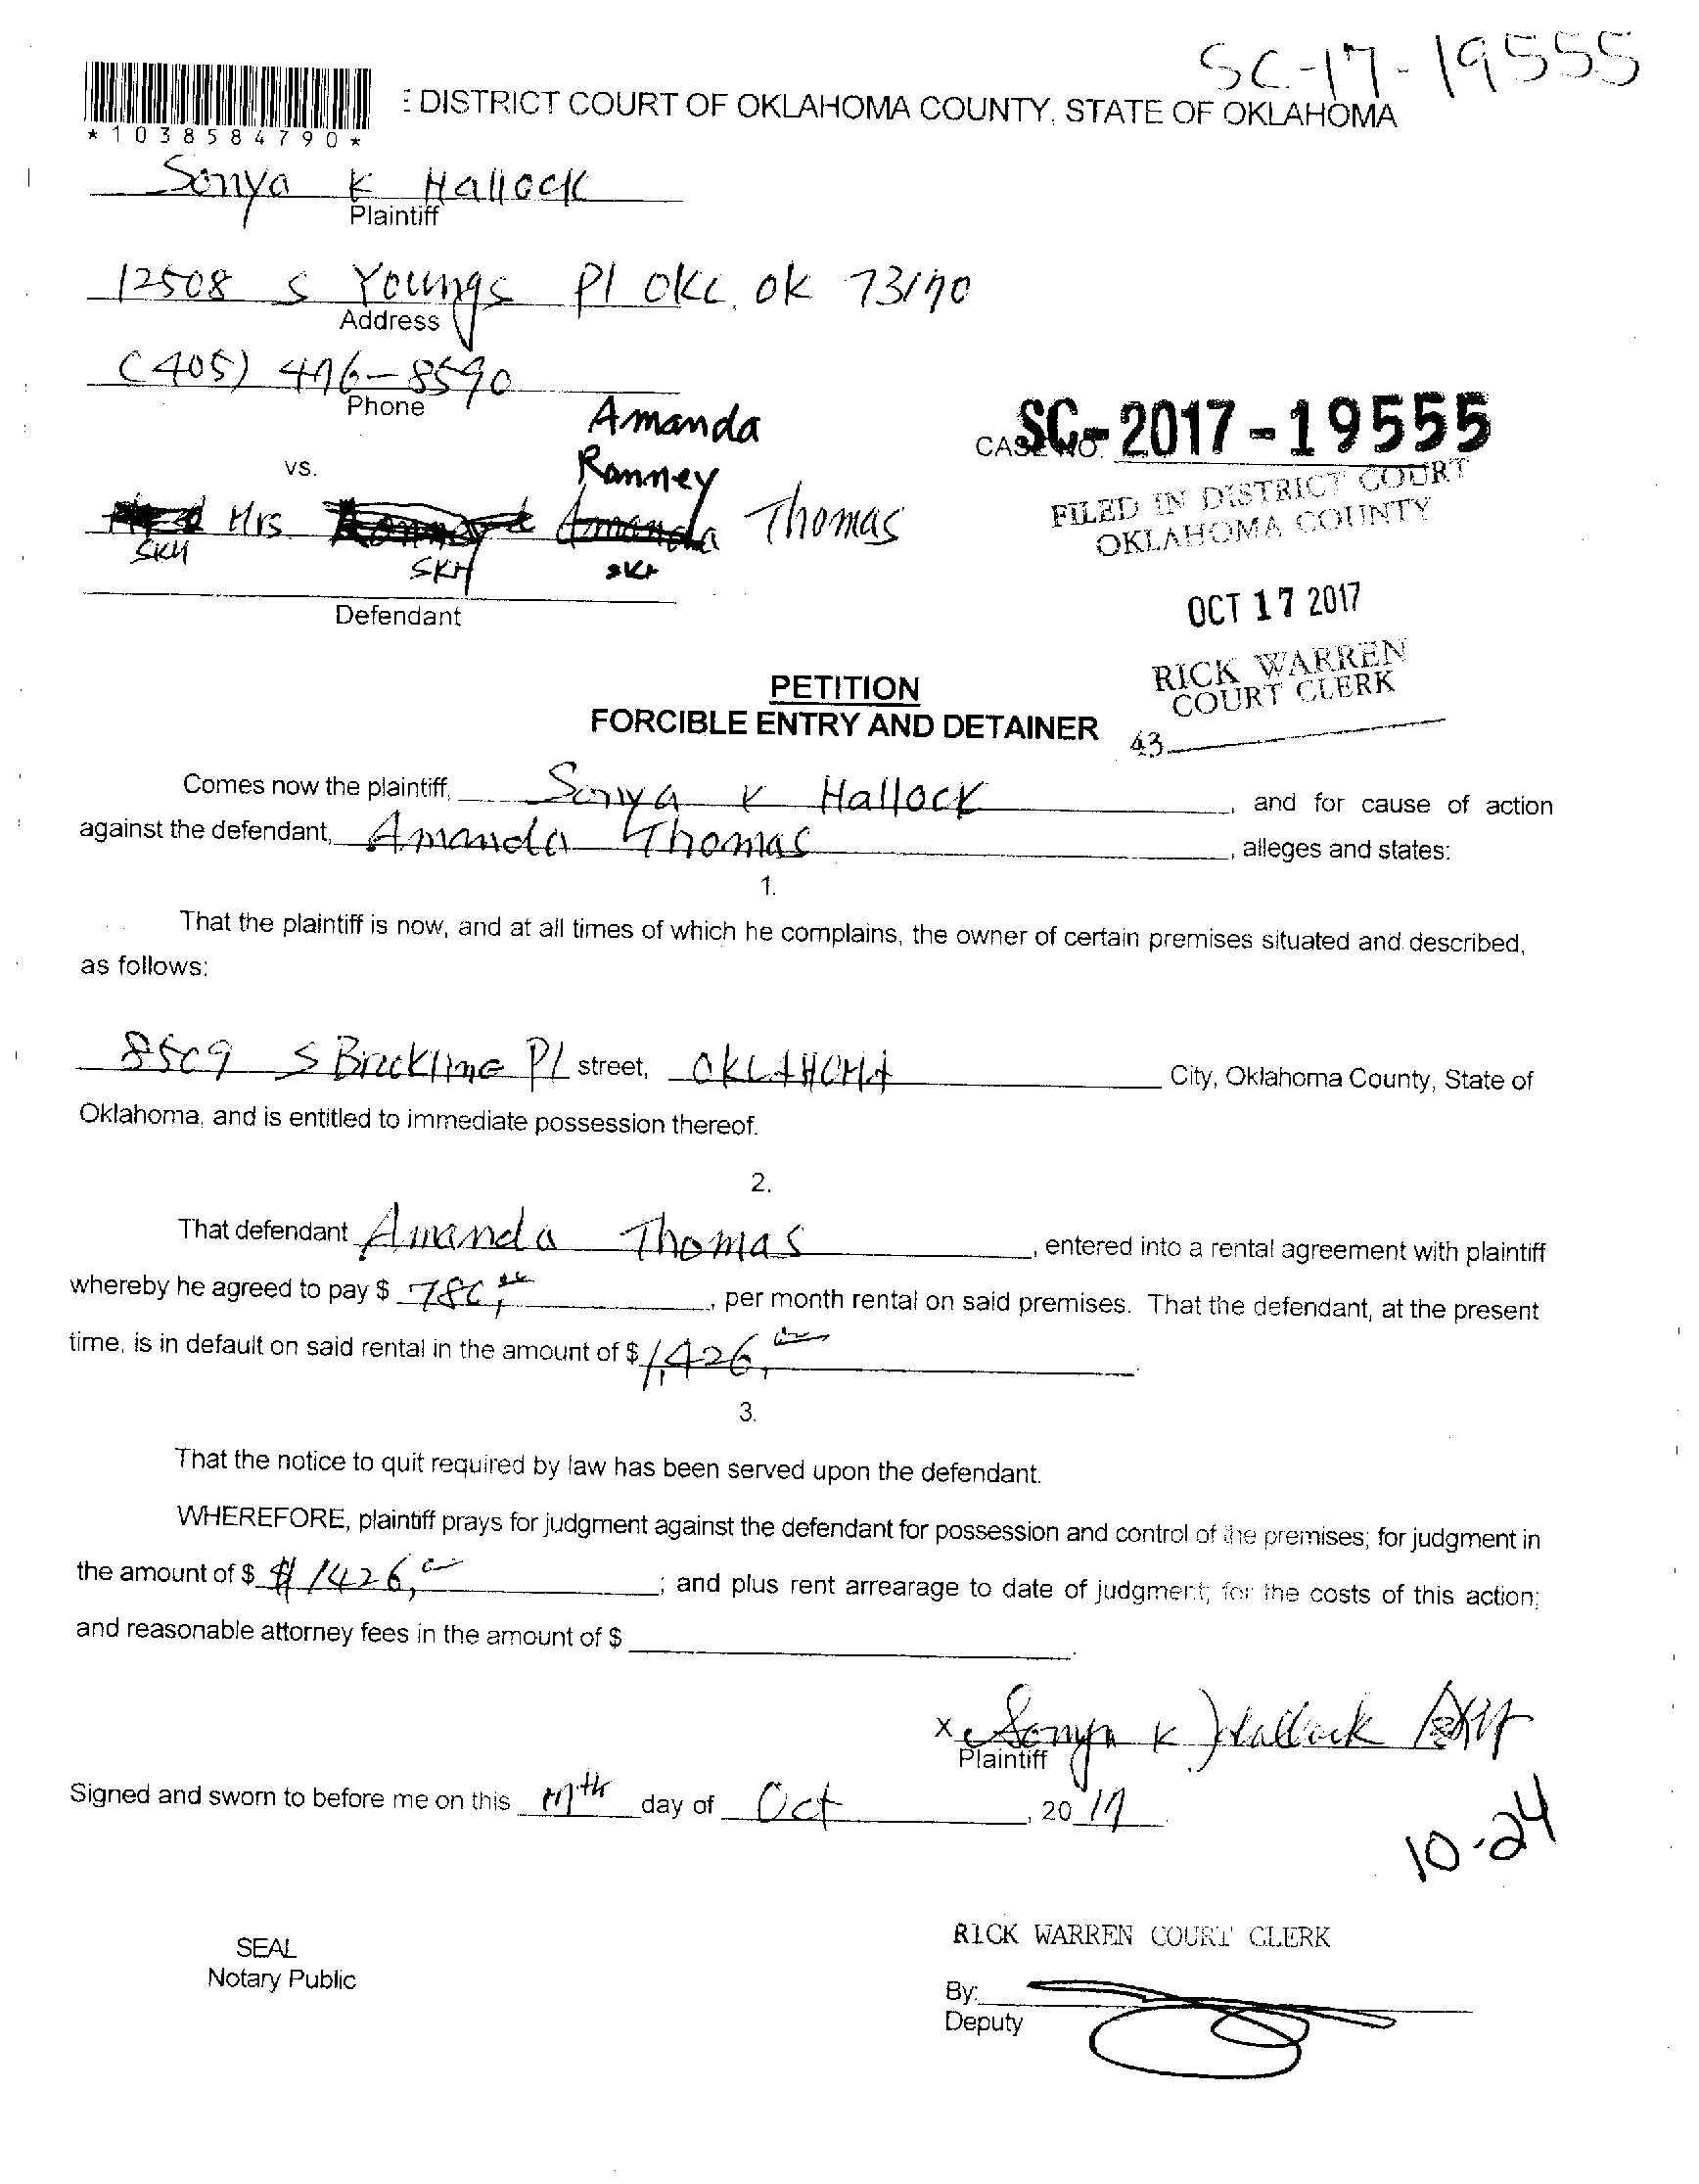 SC-17-19555
E DISTRICT COURT OF OKLAHOMA COUNTY, STATE OF OKLAHOMA
*1038584790*
Sonya K Hallock
Plaintiff
12508 S Youngs Pl OKC, OK 73170
Address
(405) 476-8590
Phone
Amanda
CASE NO. SC-2017-19555
vs.
Ranney
FILED IN DISTRICT COURT
OKLAHOMA COUNTY
Mrs. Amanda Thomas
SKH SKH SKH
Defendant
OCT 17 2017
RICK WARREN
COURT CLERK
43
PETITION
FORCIBLE ENTRY AND DETAINER
Comes now the plaintiff, Sonya K Hallock, and for cause of action
against the defendant, Amanda Thomas, alleges and states:
1.
That the plaintiff is now, and at all times of which he complains, the owner of certain premises situated and described,
as follows:
8509 S Brookline Pl street, OKLAHOMA City, Oklahoma County, State of
Oklahoma, and is entitled to immediate possession thereof.
2.
That defendant Amanda Thomas, entered into a rental agreement with plaintiff
whereby he agreed to pay $ 780.00, per month rental on said premises. That the defendant, at the present
time, is in default on said rental in the amount of $ 1,426.00.
3.
That the notice to quit required by law has been served upon the defendant.
WHEREFORE, plaintiff prays for judgment against the defendant for possession and control of the premises; for judgment in
the amount of $ $1426.00; and plus rent arrearage to date of judgment; for the costs of this action;
and reasonable attorney fees in the amount of $ .
x Sonya K Hallock
Plaintiff
Signed and sworn to before me on this 17th day of Oct, 2017
10-24
RICK WARREN COURT CLERK
SEAL
Notary Public
By:
Deputy